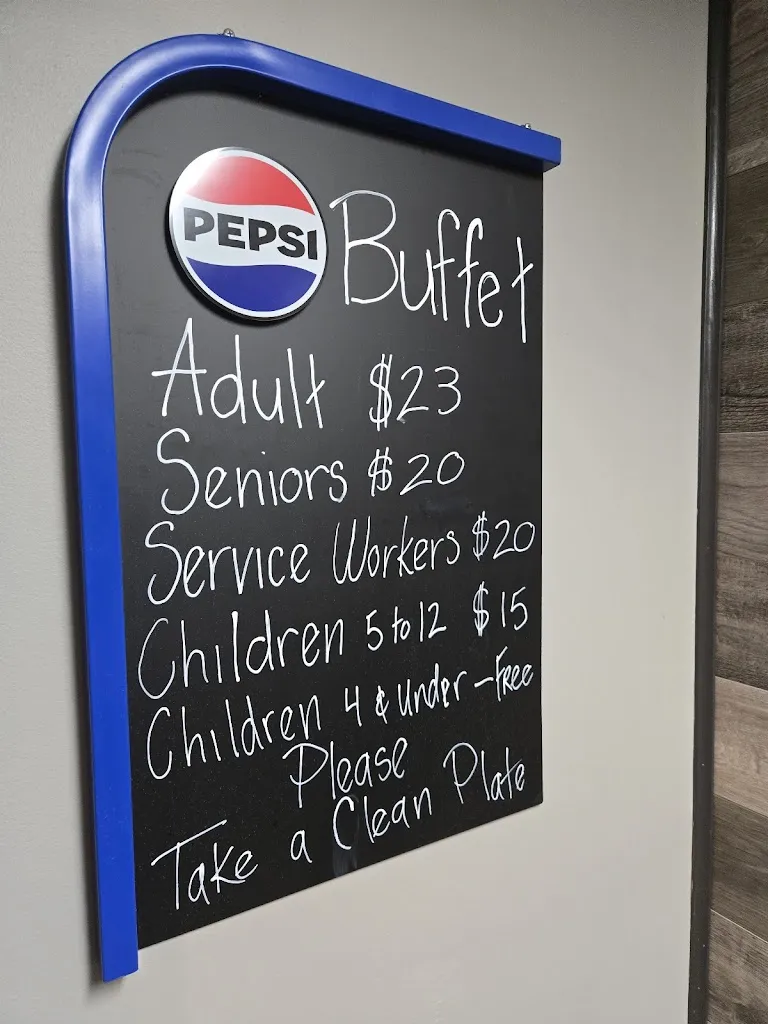 PEPSI
Buffet
Adult $23
Seniors $20
Service Workers $20
Children 5 to 12 $15
Children 4 & under - Free
Please
Take a Clean Plate